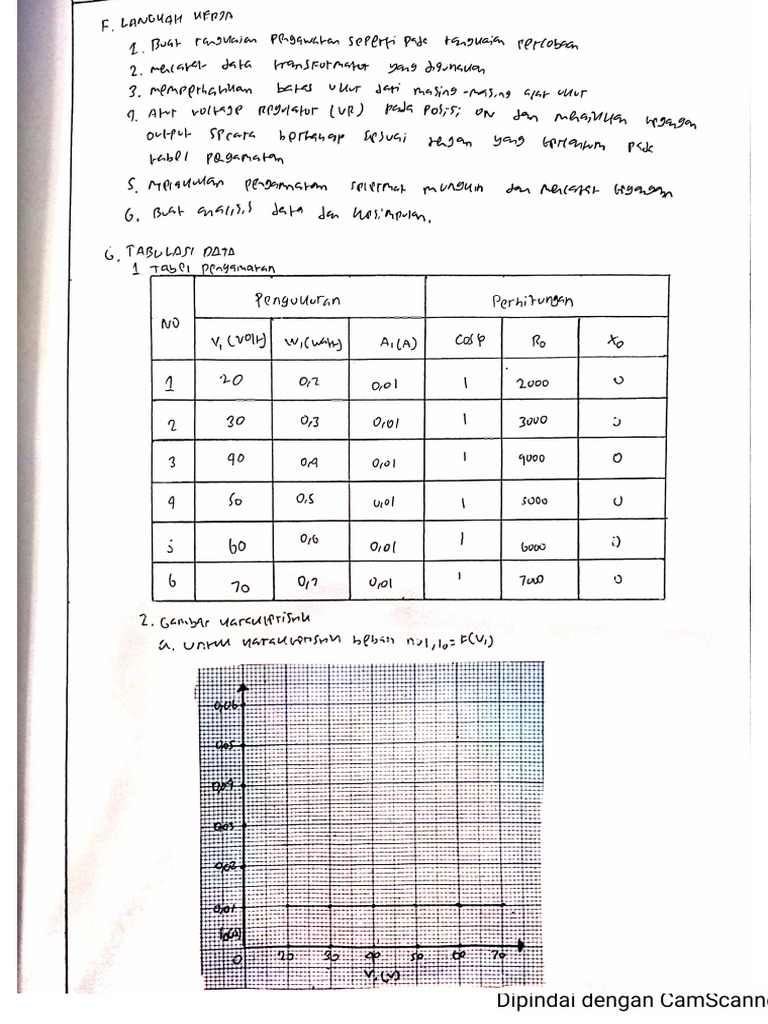 F. LANGKAH KERJA
1. Buat rangkaian pengawatan seperti pada rangkaian percobaan
2. mencatat data transformator yang digunakan
3. memperhatikan batas ukur dari masing-masing alat ukur
4. Atur voltage Regulator (VR) pada posisi ON dan menaikkan tegangan
output secara bertahap sesuai dengan yang tercantum pada
tabel pengamatan
5. Melakukan pengamatan secermat mungkin dan mencatat tegangan
6. Buat analisis data dan kesimpulan.
G. TABULASI DATA
1 Tabel pengamatan
NO Pengukuran Perhitungan
V1 (Volt) W1 (watt) A1 (A) Cos φ Ro Xo
1 20 0,2 0,01 1 2000 0
2 30 0,3 0,01 1 3000 0
3 40 0,4 0,01 1 4000 0
4 50 0,5 0,01 1 5000 0
5 60 0,6 0,01 1 6000 0
6 70 0,7 0,01 1 7000 0
2. Gambar karakteristik
a. untuk karakteristik beban nol, Io = F(V1)
0,06
0,05
0,04
0,03
0,02
0,01
Io(A)
0 20 30 40 50 60 70
V1 (V)
Dipindai dengan CamScanne